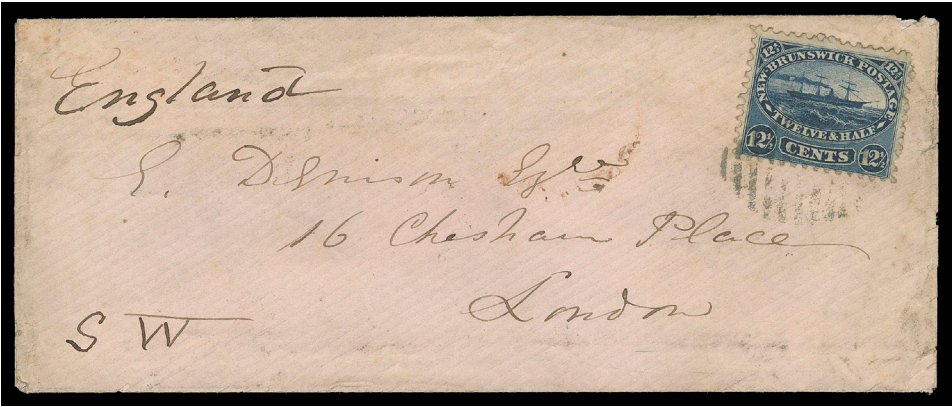 England
12½ 12½
NEW BRUNSWICK POSTAGE
TWELVE & HALF
12½ CENTS 12½
E. Denison Esqre
16 Chesham Place
London
S W